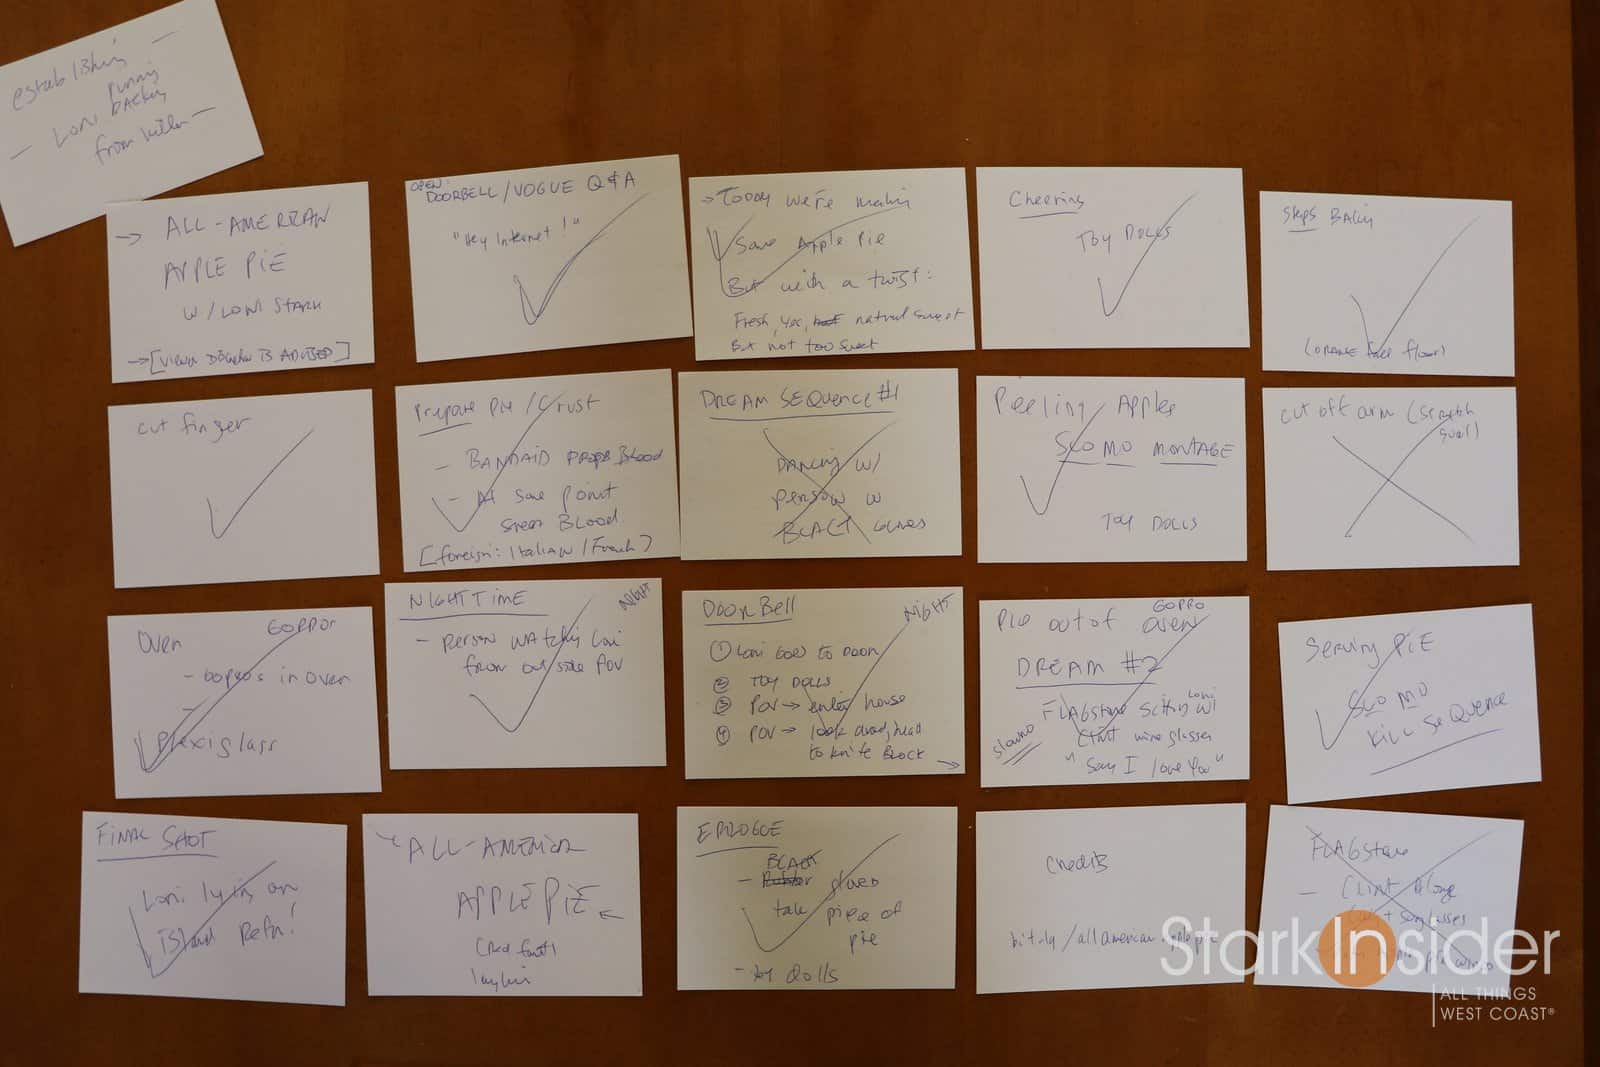 establishing —
Loni
— from killer —
→ ALL-AMERICAN
APPLE PIE
W/ LONI STARK
→ [VIEWER IS ADVISED]
OPEN:
DOORBELL/VOGUE Q&A
"Hey Internet!"
→ Today we're making
Some Apple Pie
But with a twist:
Fresh, yes, natural sweet
But not too sweet
Cheering
TOY DOLLS
Steps BAKing
floor)
cut finger
Prepare Pie / Crust
- BANDAID PROPS BLOOD
- At some point
BLOOD
[foreign: ITALIAN / French]
DREAM SEQUENCE #1
DANCING W/
PERSON W
BLACK GLOVES
Peeling Apples
SLO MO MONTAGE
TOY DOLLS
cut off arm (
OVEN GOPRO!
- GoPros in oven
-
Plexiglass
NIGHTTIME NIGHT
- PERSON WATCHING Loni
from outside POV
DOORBELL NIGHT
① Loni Goes to Door
② TOY DOLLS
③ POV → enter house
④ POV → look around, head
to knife BLOCK →
PIE out of oven GOPRO
DREAM #2
FLAGstone Sitting W/ Loni
slowmo Clint wine glasses
"Say I love You"
Serving PIE
SLO MO
Kill SEQUENCE
FINAL SHOT
Loni lying on
island Return!
ALL-AMERICAN
APPLE PIE ←
(Red font)
EPILOGUE
BLACK
- gloved
take piece of
pie
- toy dolls
Credits
bitly/allamerican
FLAGstone
- Clint
sunglasses
StarkInsider
ALL THINGS
WEST COAST®